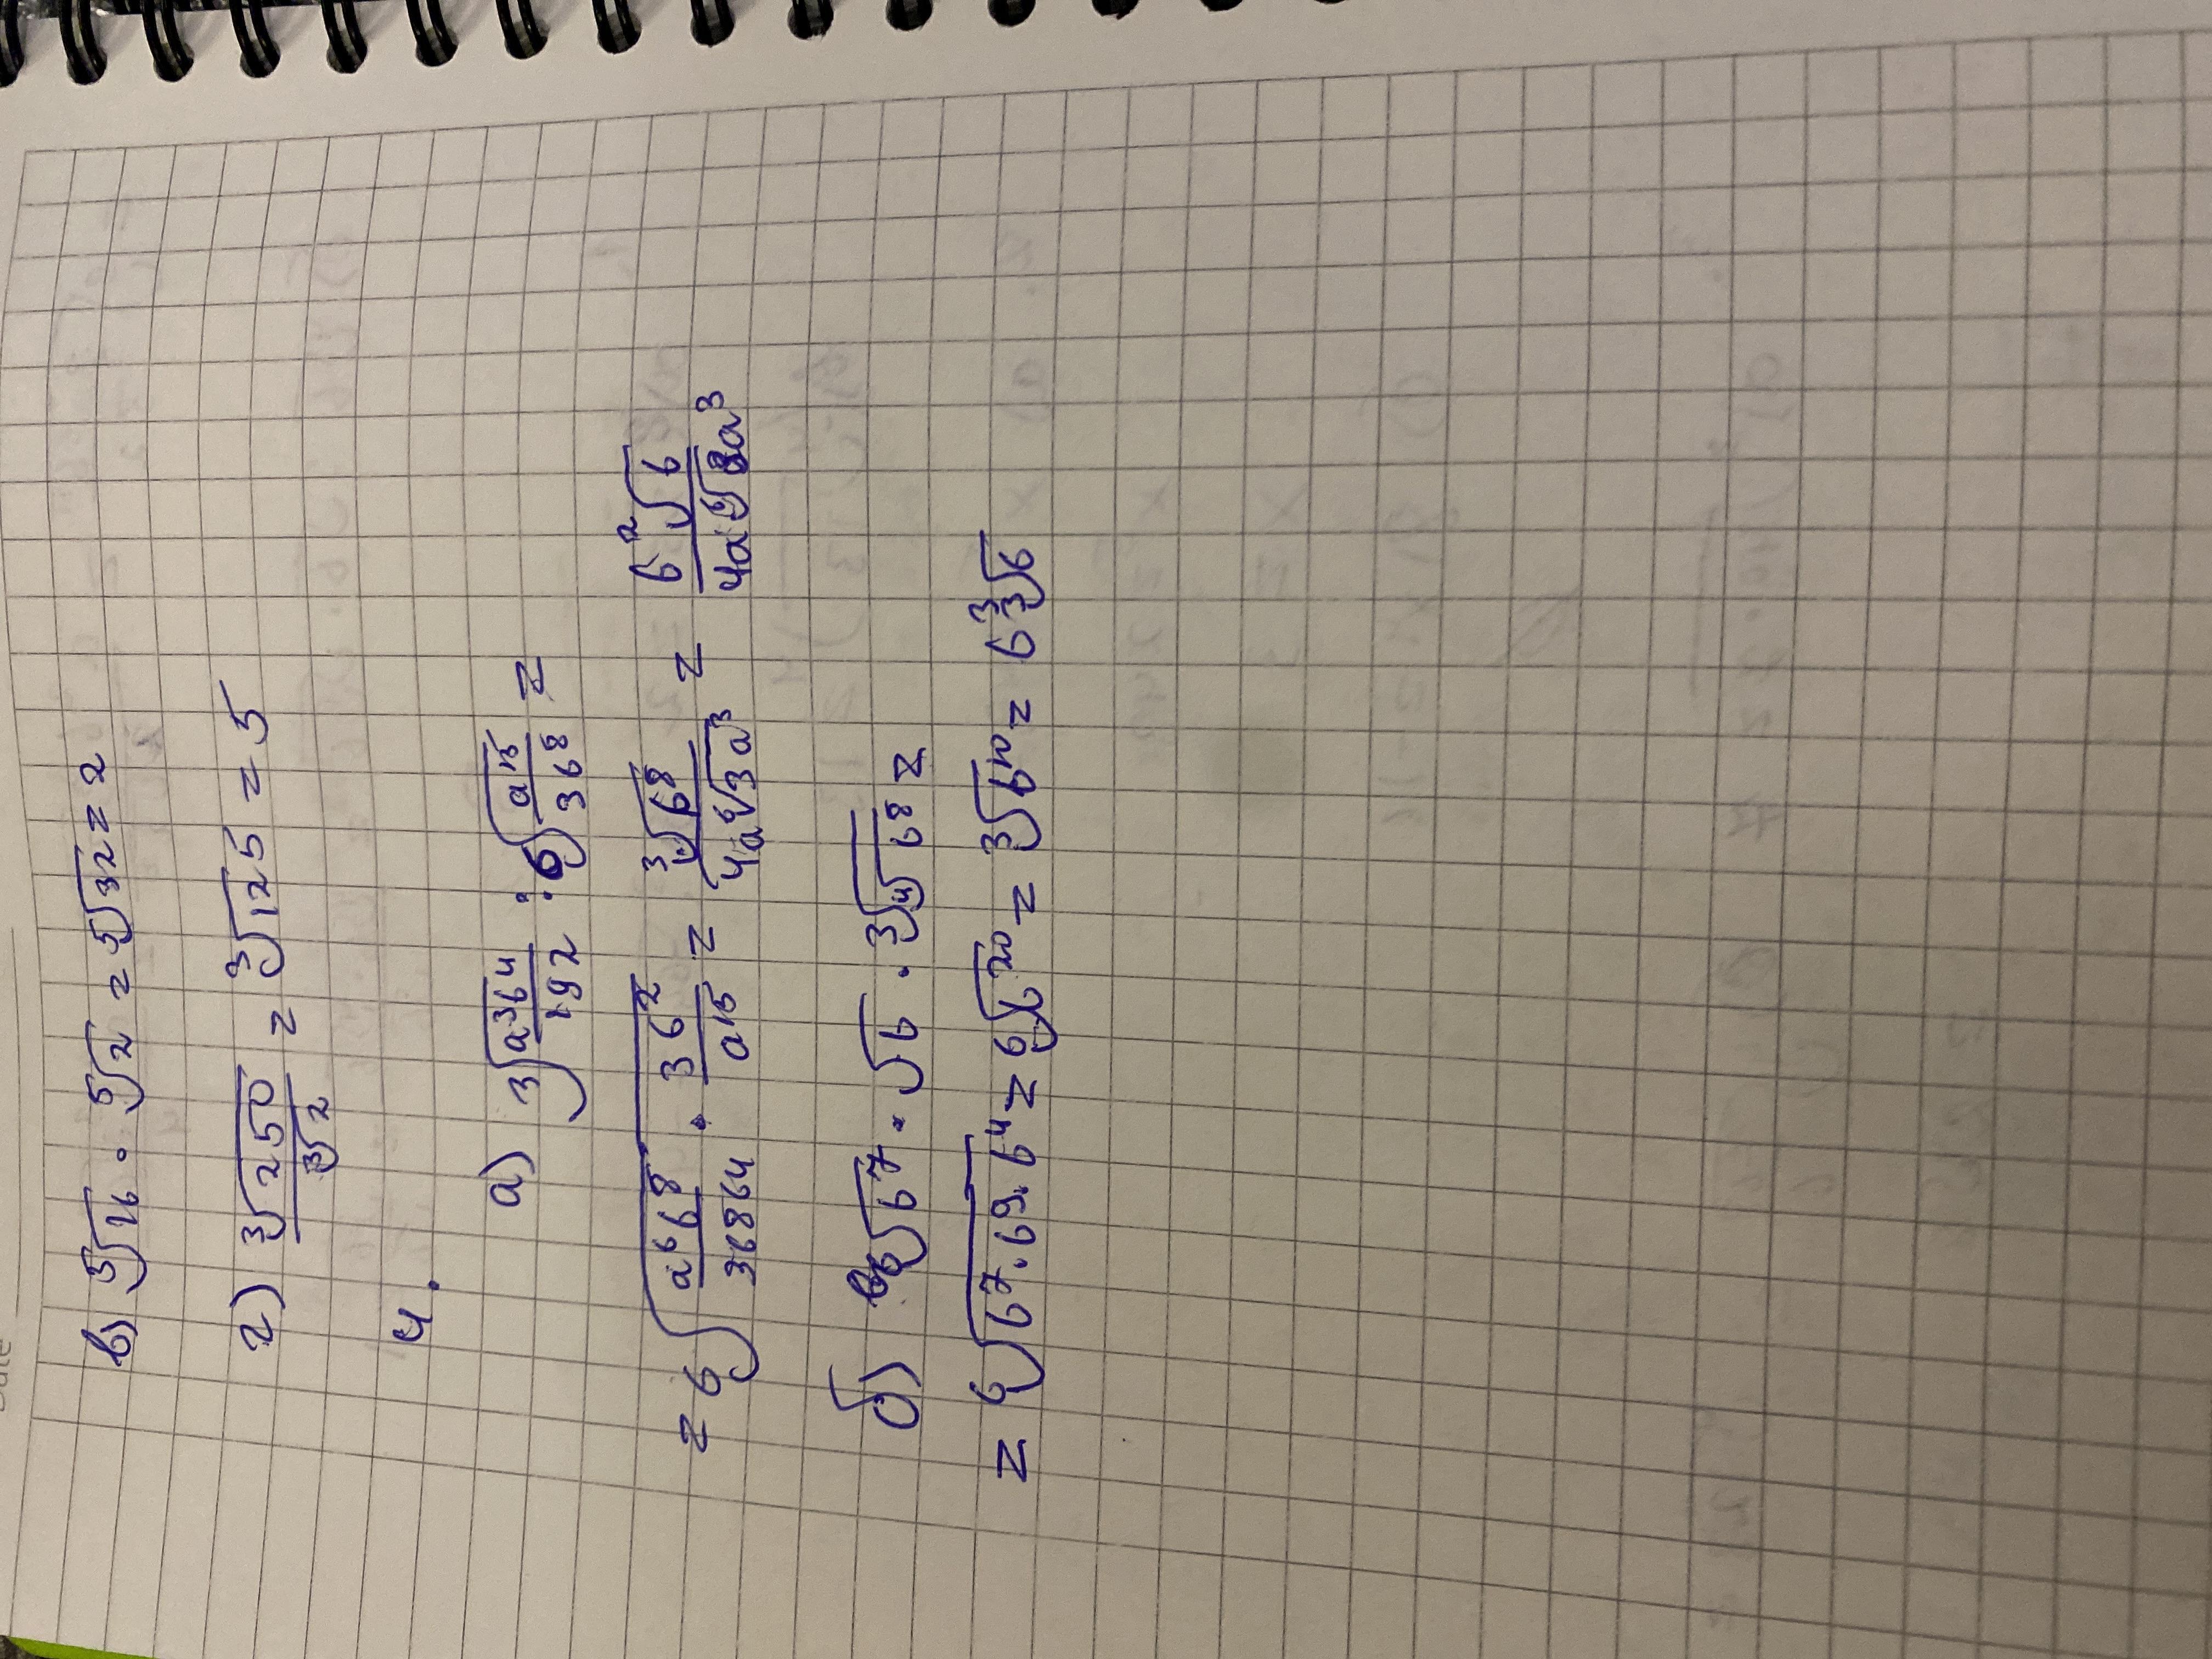 в) ⁵√16 · ⁵√2 = ⁵√32 = 2
г) ³√250 / ³√2 = ³√125 = 5
4.
а) ³√(a³b⁴/192) : ⁶√(a¹⁵/3b⁸) =
= ⁶√(a⁶b⁸/36864 · 3b²/a¹⁵) = ³√b⁸ / 4a⁶√3a³ = b² ⁶√b / 4a ⁶√3a³
б) ⁶√b⁷ · √b · ³√⁴√b⁸ =
= ⁶√(b⁷·b9·b⁴) = ⁶√b²⁰ = ³√b¹⁰ = b³ ³√b